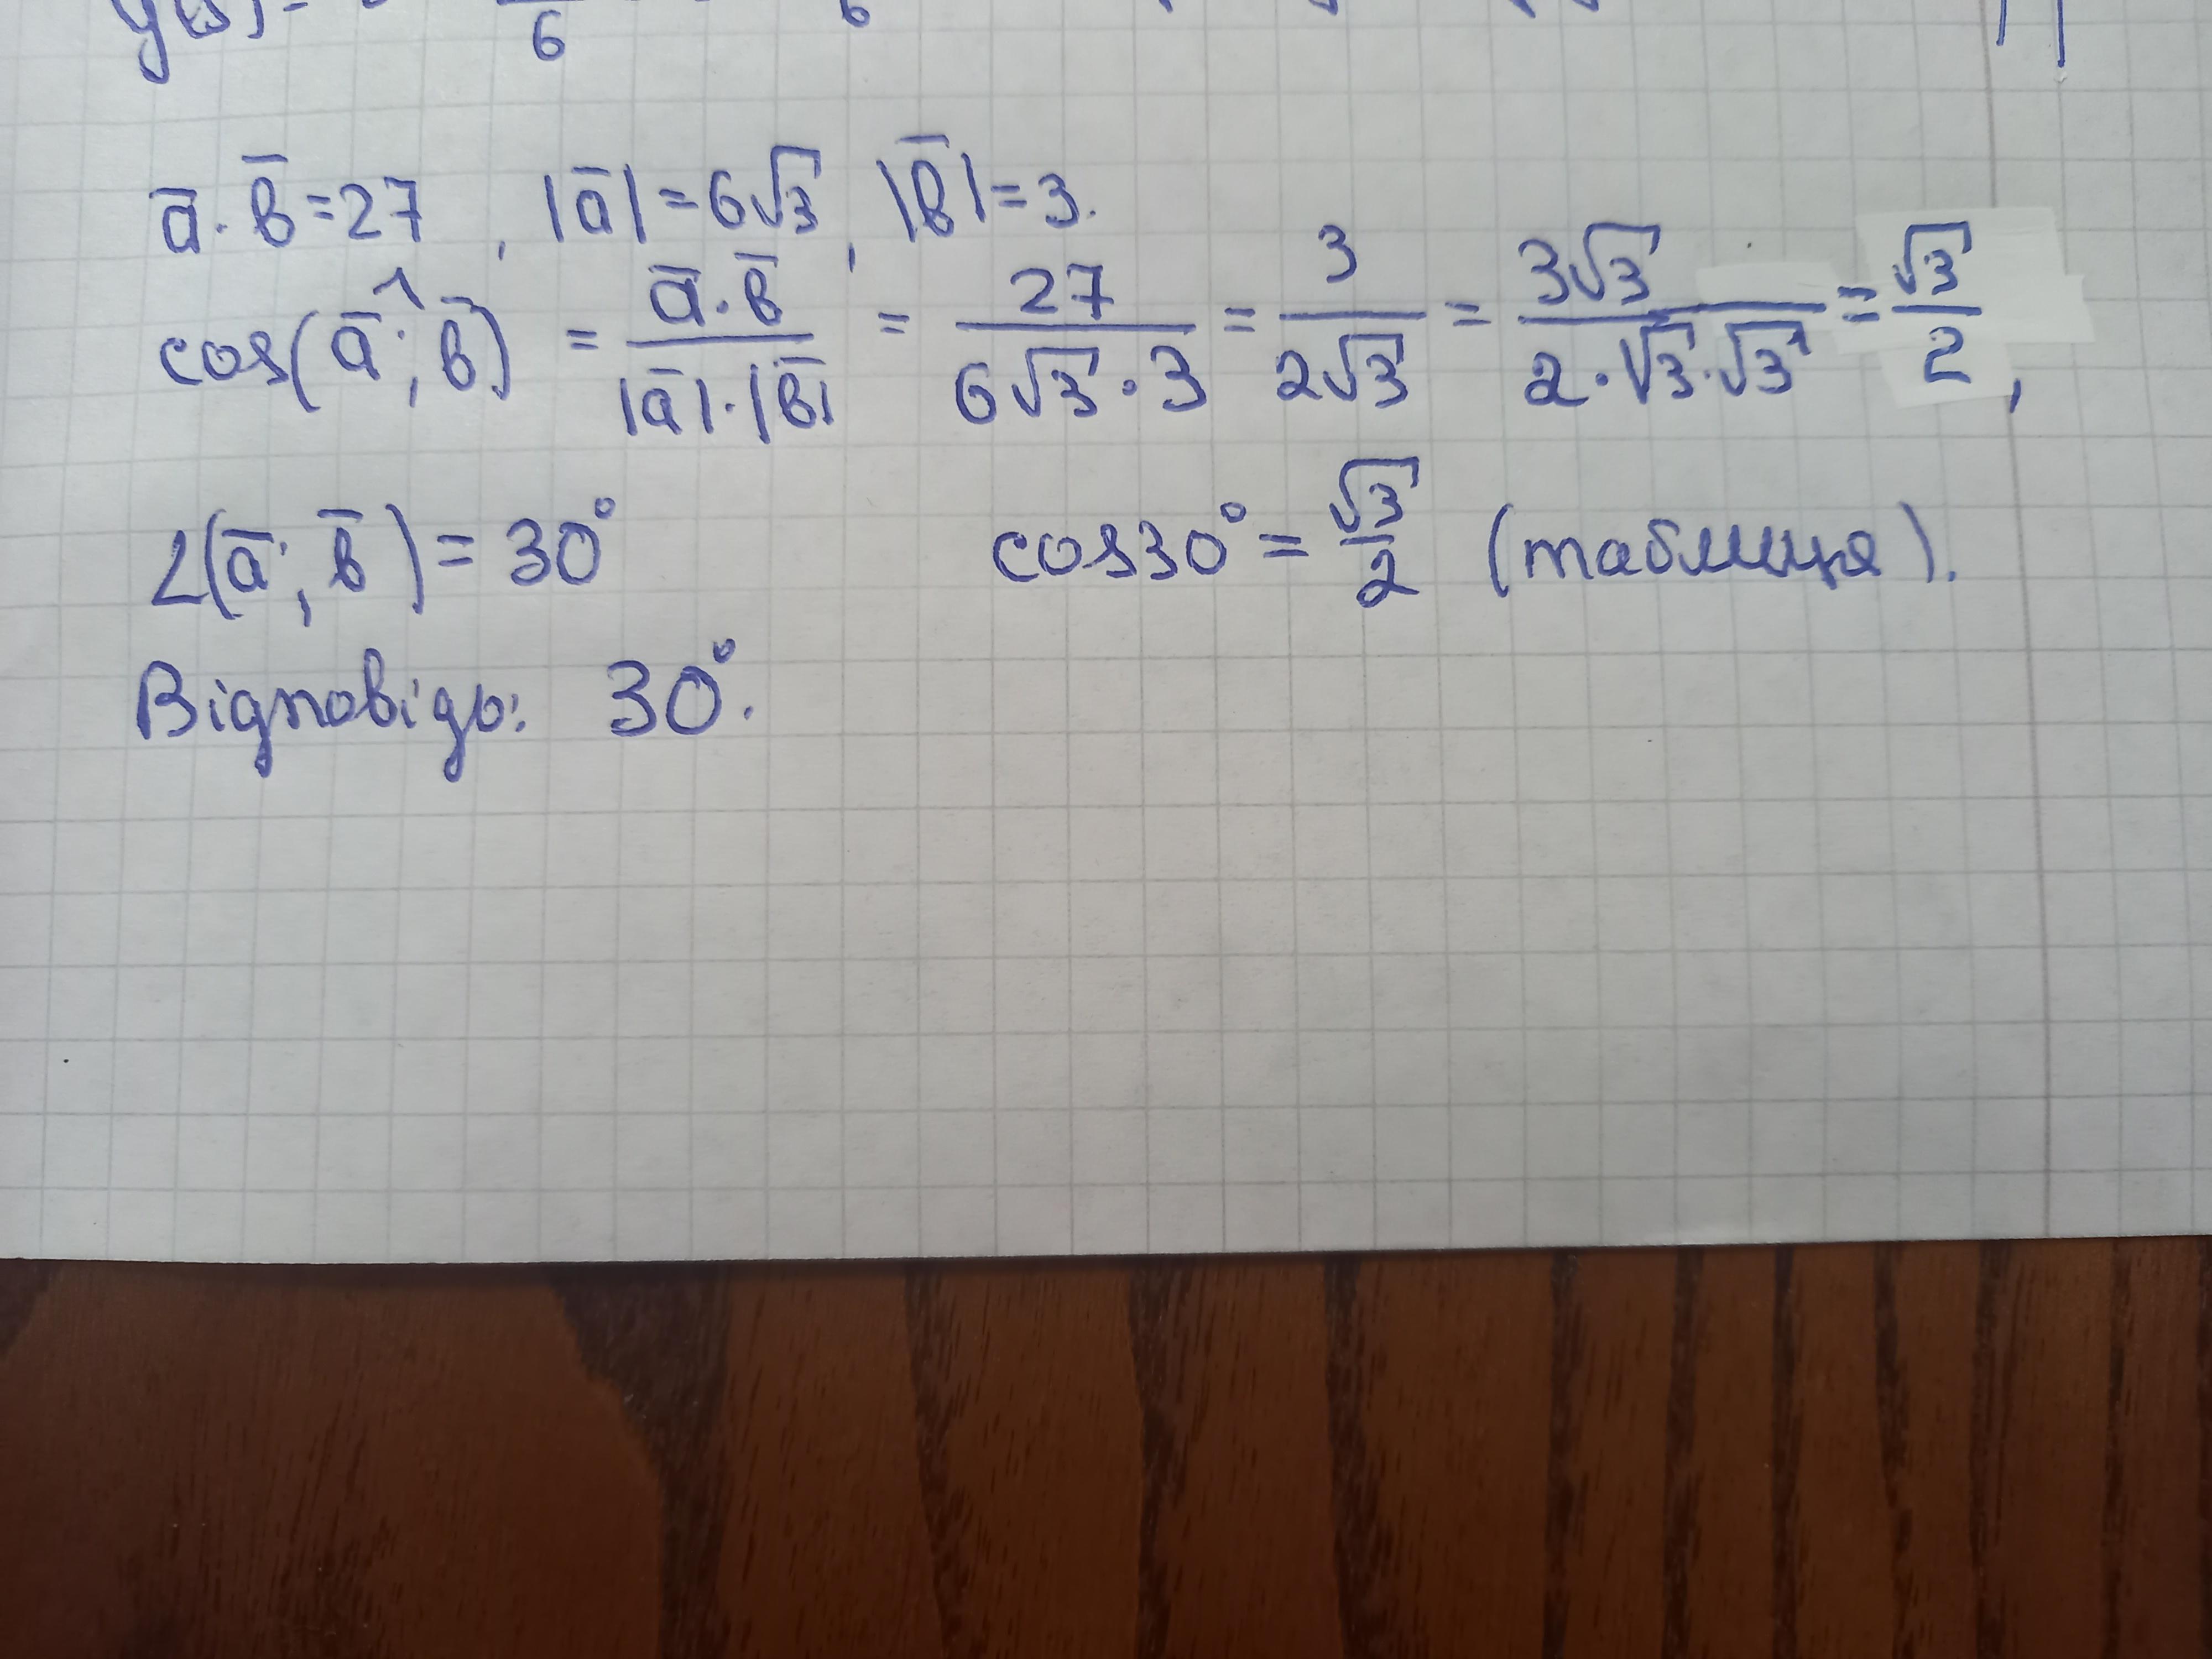 a̅ · b̅ = 27, |a̅| = 6√3, |b̅| = 3.
cos(a̅^; b̅) = (a̅ · b̅)/(|a̅| · |b̅|) = 27/(6√3 · 3) = 3/(2√3) = 3√3/(2 · √3 · √3) = √3/2,
∠(a̅; b̅) = 30° cos30° = √3/2 (таблиця).
Відповідь: 30°.